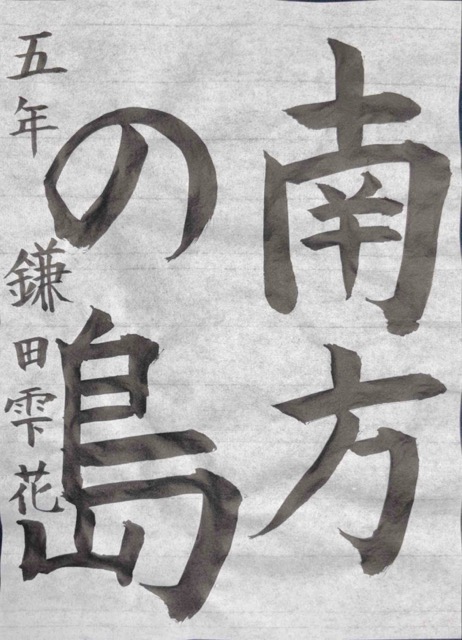 南方
の島
五年 鎌田雫花